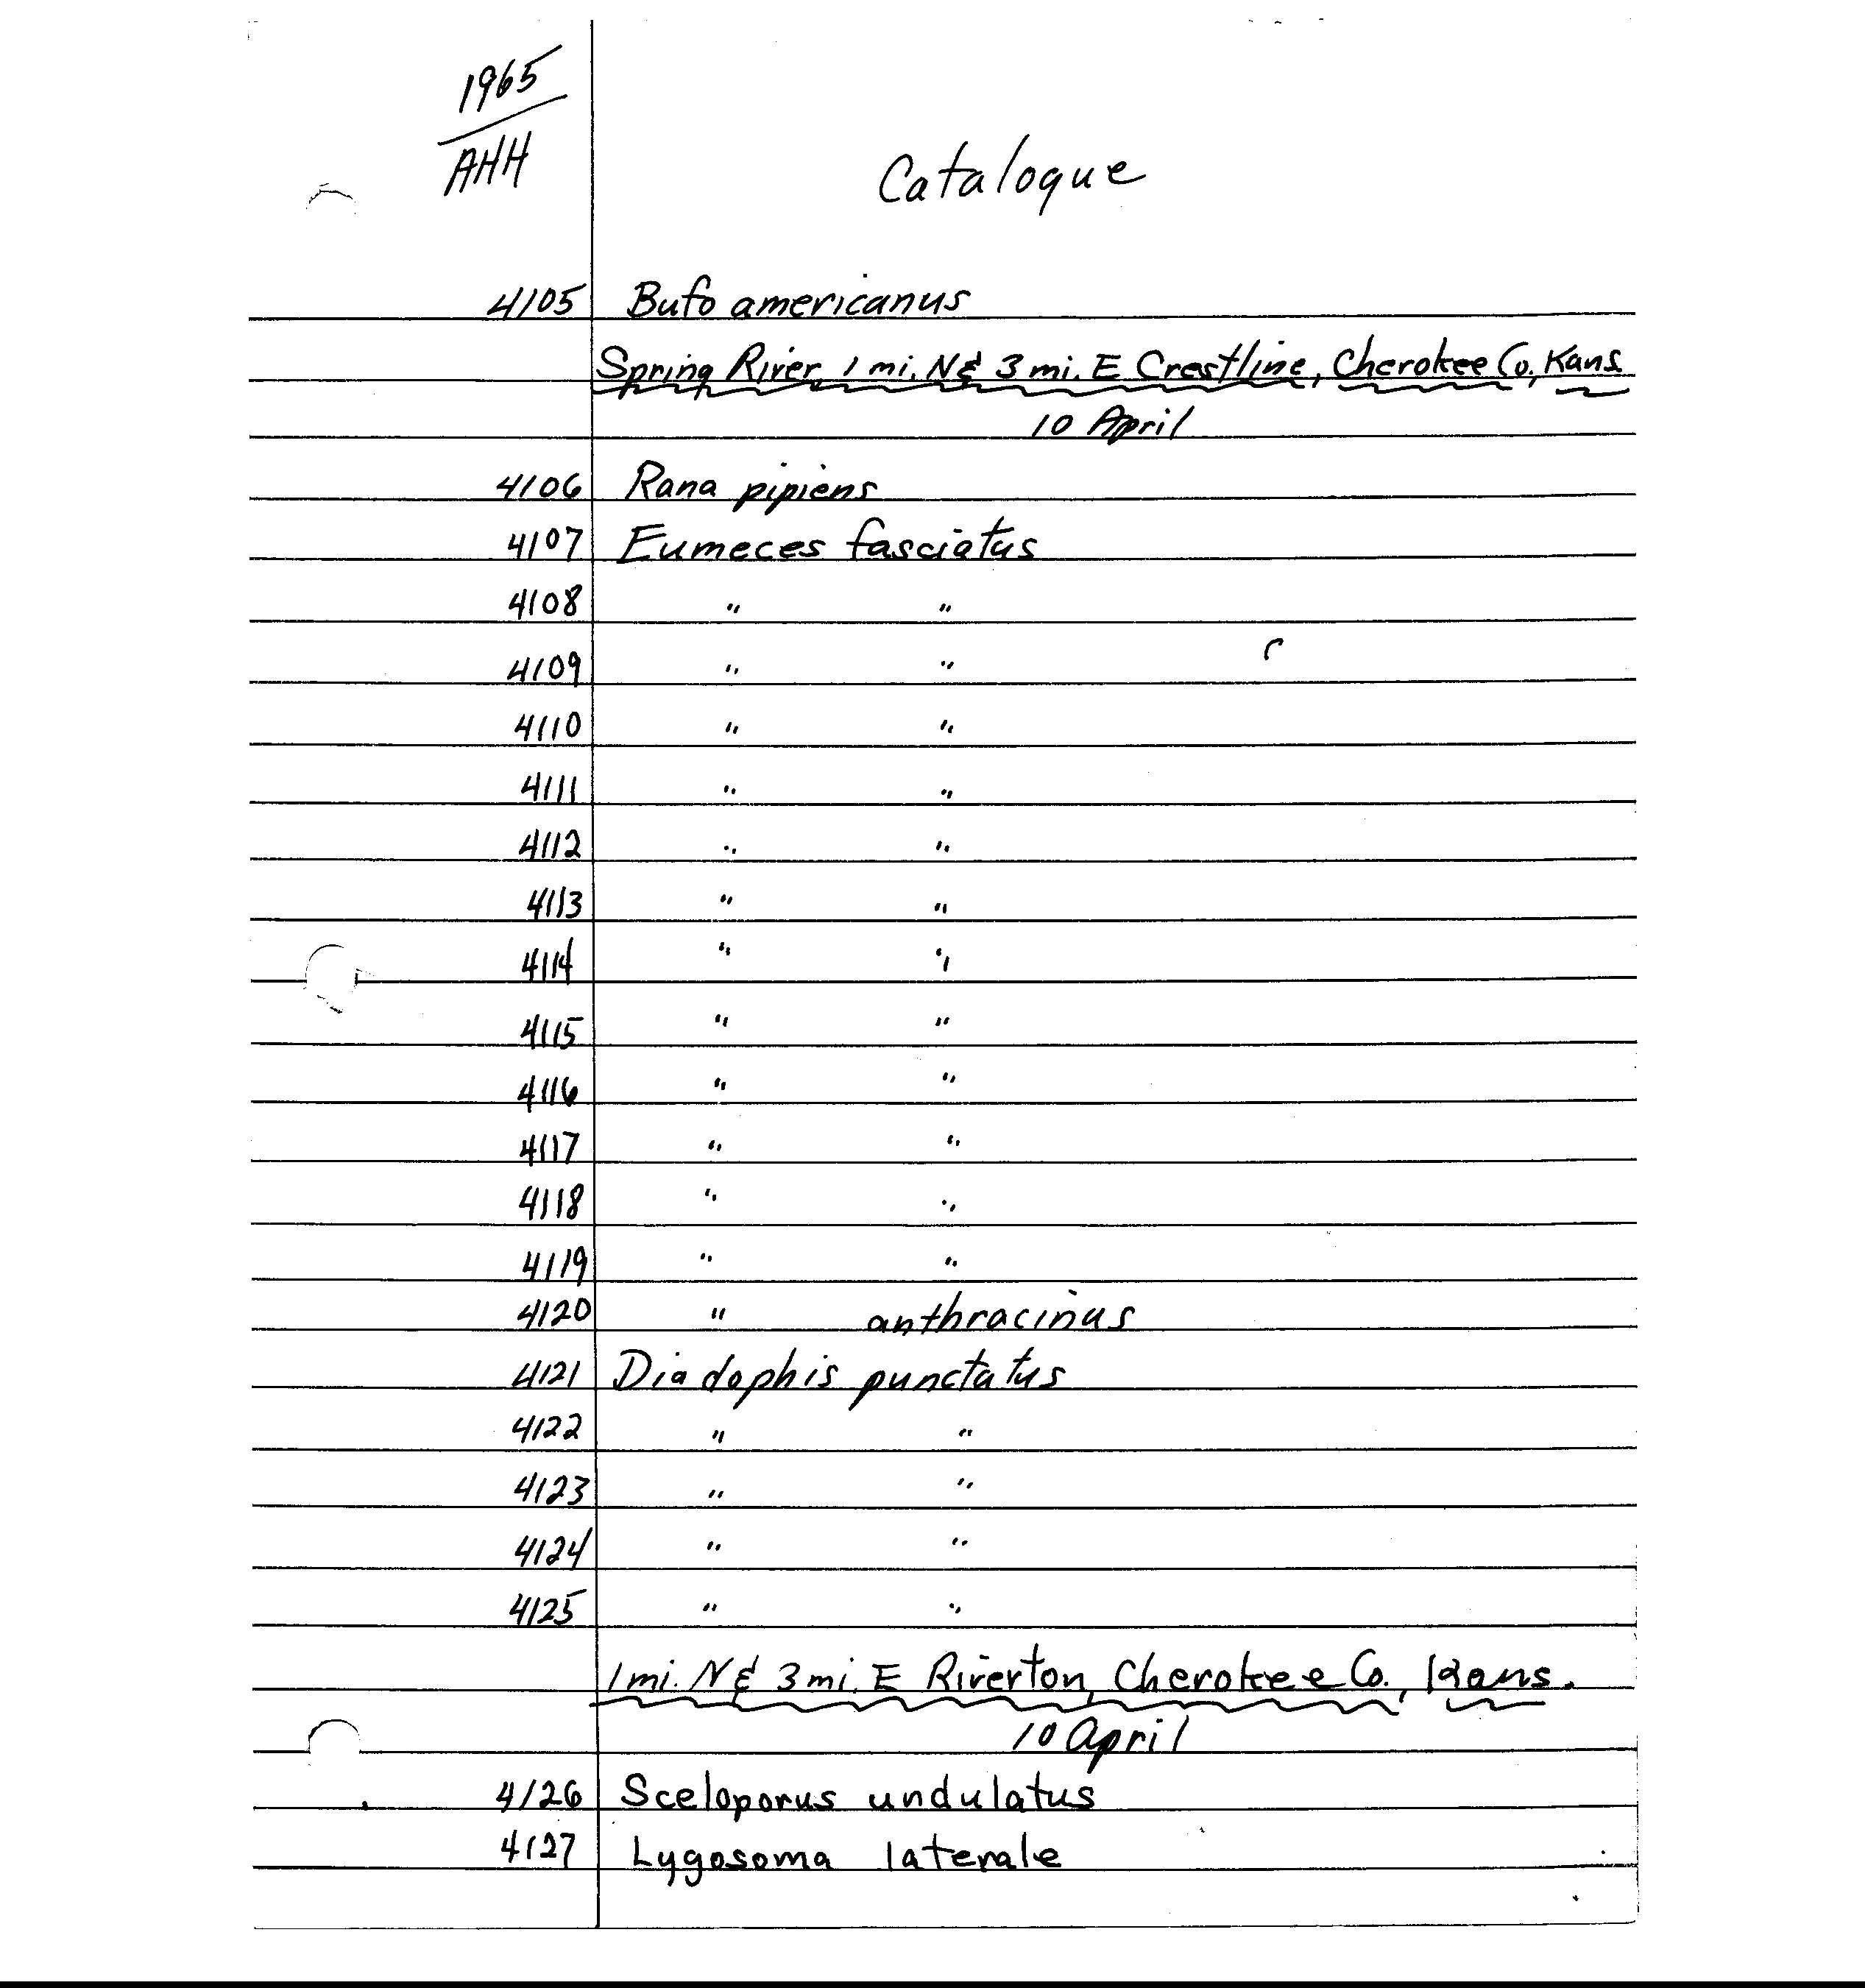 1965
AHH
Catalogue
4105 Bufo americanus
Spring River, 1 mi. N & 3 mi. E Crestline, Cherokee Co, Kans
10 April
4106 Rana pipiens
4107 Eumeces fasciatus
4108 " "
4109 " "
4110 " "
4111 " "
4112 " "
4113 " "
4114 " "
4115 " "
4116 " "
4117 " "
4118 " "
4119 " "
4120 " anthracinus
4121 Diadophis punctatus
4122 " "
4123 " "
4124 " "
4125 " "
1 mi. N & 3 mi. E Riverton, Cherokee Co., Kans.
10 April
4126 Sceloporus undulatus
4127 Lygosoma laterale